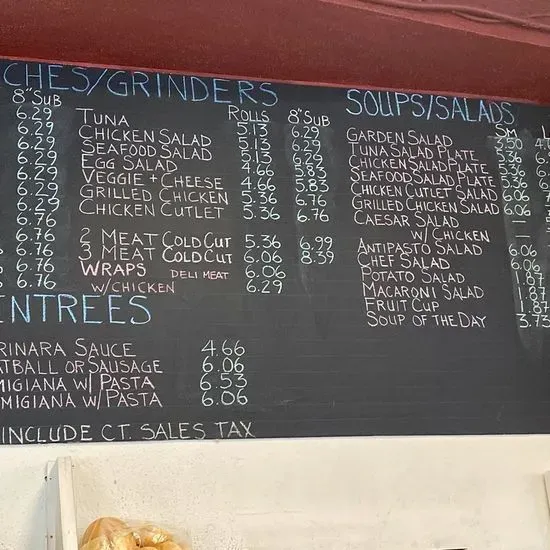 CHES/GRINDERS
8" SUB
6.29
6.29
6.29
6.29
6.29
6.29
6.29
6.76
6.76
6.76
6.76
ROLLS 8" SUB
TUNA 5.13 6.29
CHICKEN SALAD 5.13 6.29
SEAFOOD SALAD 5.13 6.29
EGG SALAD 4.66 5.83
VEGGIE + CHEESE 4.66 5.83
GRILLED CHICKEN 5.36 6.76
CHICKEN CUTLET 5.36 6.76
2 MEAT COLD CUT 5.36 6.99
3 MEAT COLD CUT 6.06 8.39
WRAPS DELI MEAT 6.06
W/CHICKEN 6.29
SOUPS/SALADS
SM
GARDEN SALAD 3.50
TUNA SALAD PLATE 5.36
CHICKEN SALAD PLATE 5.36
SEAFOOD SALAD PLATE 5.36
CHICKEN CUTLET SALAD 6.06
GRILLED CHICKEN SALAD 6.06
CAESAR SALAD
W/ CHICKEN —
ANTIPASTO SALAD 6.06
CHEF SALAD 6.06
POTATO SALAD 1.87
MACARONI SALAD 1.87
FRUIT CUP 1.87
SOUP OF THE DAY 3.73
ENTREES
RINARA SAUCE 4.66
ATBALL OR SAUSAGE 6.06
MIGIANA W/ PASTA 6.53
MIGIANA W/ PASTA 6.06
INCLUDE CT. SALES TAX